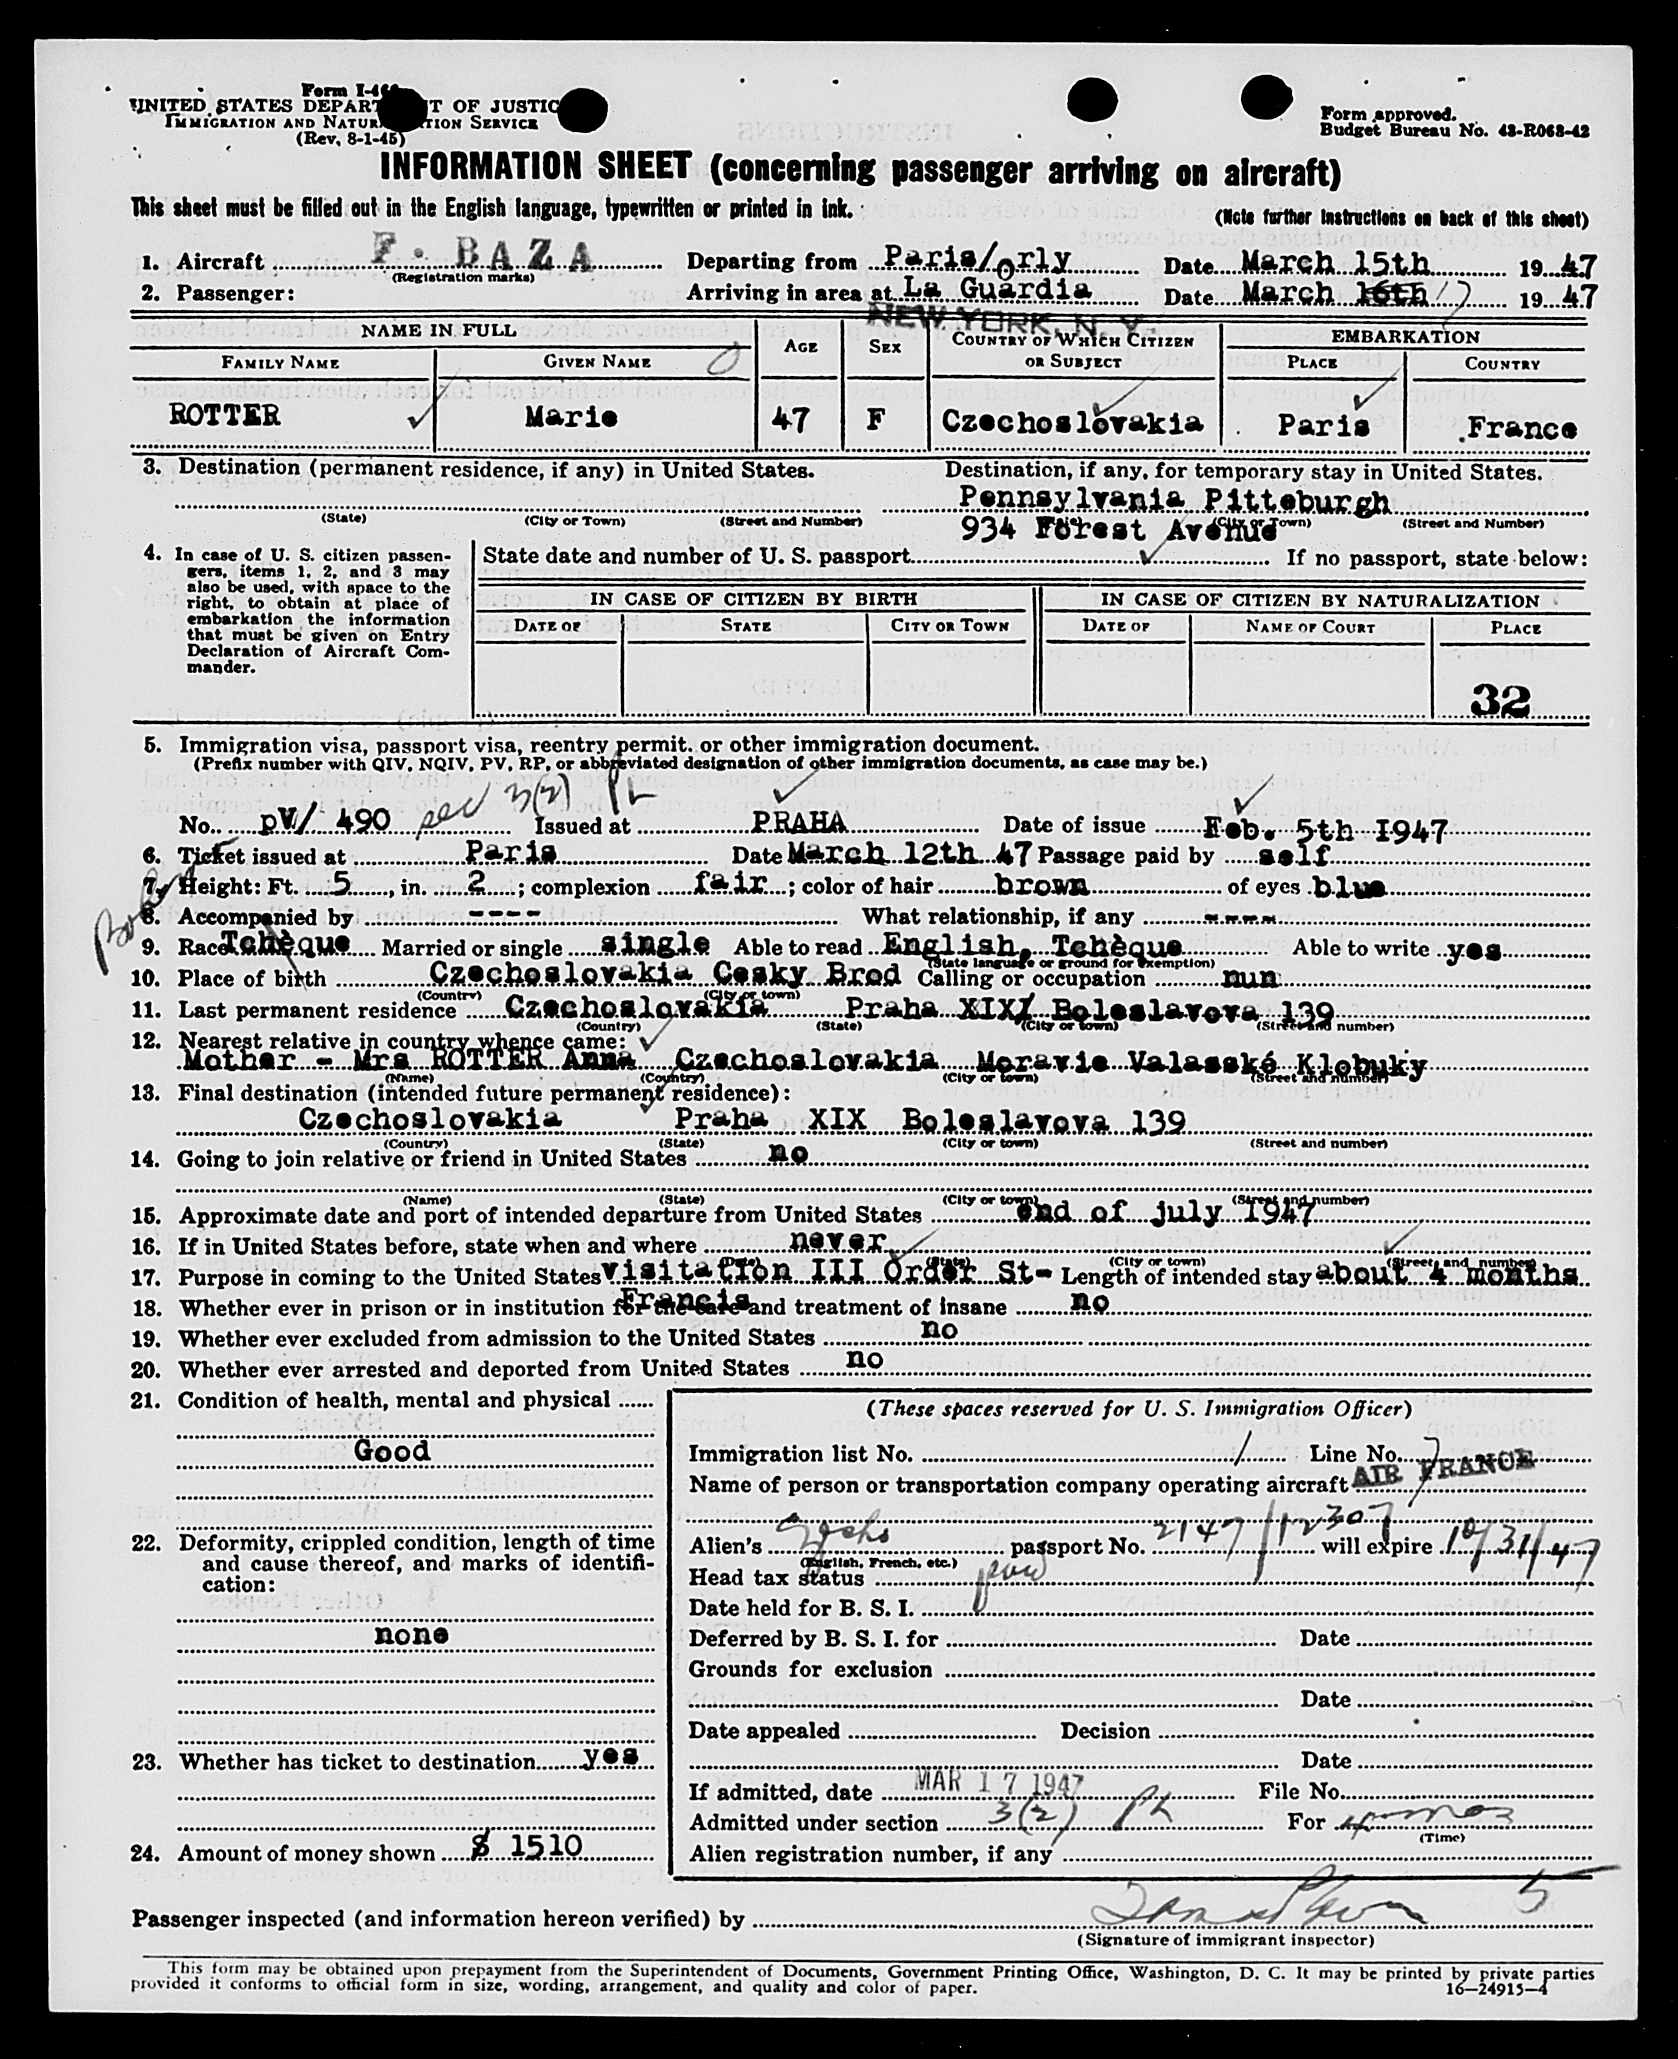 Form I-466
UNITED STATES DEPARTMENT OF JUSTICE
IMMIGRATION AND NATURALIZATION SERVICE
(Rev. 8-1-45)
Form approved.
Budget Bureau No. 43-R063-42
INFORMATION SHEET (concerning passenger arriving on aircraft)
This sheet must be filled out in the English language, typewritten or printed in ink.
(Note further instructions on back of this sheet)
1. Aircraft F. BAZA Departing from Paris/Orly Date March 15th 1947
(Registration marks)
2. Passenger: Arriving in area at La Guardia Date March 16th 17 1947
NEW YORK, N. Y.
NAME IN FULL AGE SEX COUNTRY OF WHICH CITIZEN OR SUBJECT EMBARKATION
FAMILY NAME GIVEN NAME PLACE COUNTRY
ROTTER Marie 47 F Czechoslovakia Paris France
3. Destination (permanent residence, if any) in United States. Destination, if any, for temporary stay in United States.
Pennsylvania Pitteburgh
(State) (City or Town) (Street and Number) (City or Town) (Street and Number)
934 Forest Avenue
4. In case of U. S. citizen passengers, items 1, 2, and 3 may also be used, with space to the right, to obtain at place of embarkation the information that must be given on Entry Declaration of Aircraft Commander.
State date and number of U. S. passport If no passport, state below:
IN CASE OF CITIZEN BY BIRTH IN CASE OF CITIZEN BY NATURALIZATION
DATE OF STATE CITY OR TOWN DATE OF NAME OF COURT PLACE
32
5. Immigration visa, passport visa, reentry permit, or other immigration document.
(Prefix number with QIV, NQIV, PV, RP, or abbreviated designation of other immigration documents, as case may be.)
No. pV/ 490 sec 3(2) PL Issued at PRAHA Date of issue Feb. 5th 1947
6. Ticket issued at Paris Date March 12th 47 Passage paid by self
7. Height: Ft. 5, in. 2; complexion fair; color of hair brown of eyes blue
8. Accompanied by ---- What relationship, if any ----
9. Race Tchèque Married or single single Able to read English, Tchèque Able to write yes
(State language or ground for exemption)
10. Place of birth Czechoslovakia Cesky Brod Calling or occupation nun
(Country) (City or town)
11. Last permanent residence Czechoslovakia Praha XIX/ Boleslavova 139
(Country) (State) (City or town) (Street and number)
12. Nearest relative in country whence came:
Mother - Mrs ROTTER Anna Czechoslovakia Moravie Valasské Klobuky
(Name) (Country) (City or town) (Street and number)
13. Final destination (intended future permanent residence):
Czechoslovakia Praha XIX Boleslavova 139
(Country) (State) (City or town) (Street and number)
14. Going to join relative or friend in United States no
(Name) (State) (City or town) (Street and number)
15. Approximate date and port of intended departure from United States end of july 1947
16. If in United States before, state when and where never
(State) (City or town) (Street and number)
17. Purpose in coming to the United States visitation III Order St- Length of intended stay about 4 months
Francis
18. Whether ever in prison or in institution for the care and treatment of insane no
19. Whether ever excluded from admission to the United States no
20. Whether ever arrested and deported from United States no
21. Condition of health, mental and physical
Good
22. Deformity, crippled condition, length of time and cause thereof, and marks of identification:
none
23. Whether has ticket to destination yes
24. Amount of money shown $ 1510
(These spaces reserved for U. S. Immigration Officer)
Immigration list No. 1 Line No. 7
Name of person or transportation company operating aircraft AIR FRANCE
Alien's Czecho passport No. 2147/12307 will expire 10/31/47
(English, French, etc.)
Head tax status
Date held for B. S. I.
Deferred by B. S. I. for Date
Grounds for exclusion
Date
Date appealed Decision
Date
If admitted, date MAR 17 1947 File No.
Admitted under section 3(2) PL For 4 mos
(Time)
Alien registration number, if any
Passenger inspected (and information hereon verified) by 5
(Signature of immigrant inspector)
This form may be obtained upon prepayment from the Superintendent of Documents, Government Printing Office, Washington, D. C. It may be printed by private parties
provided it conforms to official form in size, wording, arrangement, and quality and color of paper. 16—24915-4